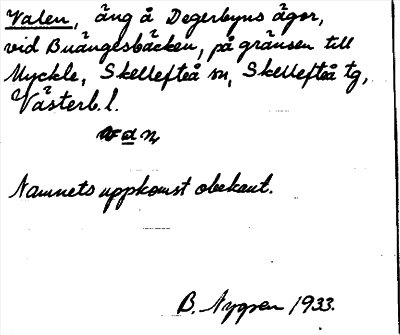 Valen, äng å Degerbyns ägor,
vid Buängesbäcken, på gränsen till
Myckle, Skellefteå sn, Skellefteå tg,
Västerb. l.
Namnets uppkomst obekant.
B. Nygren 1933.